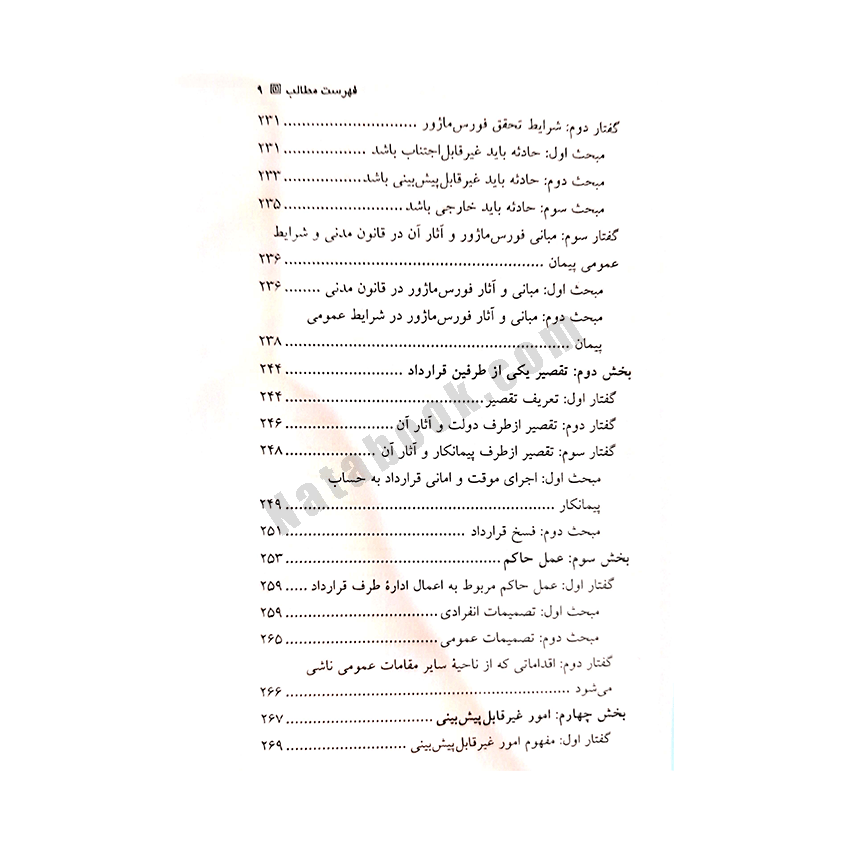 فهرست مطالب ۹
گفتار دوم: شرایط تحقق فورس‌ماژور .......................... ۲۳۱
مبحث اول: حادثه باید غیرقابل‌اجتناب باشد ................. ۲۳۱
مبحث دوم: حادثه باید غیرقابل‌پیش‌بینی باشد ................. ۲۳۳
مبحث سوم: حادثه باید خارجی باشد ........................ ۲۳۵
گفتار سوم: مبانی فورس‌ماژور و آثار آن در قانون مدنی و شرایط
عمومی پیمان .................................................. ۲۳۶
مبحث اول: مبانی و آثار فورس‌ماژور در قانون مدنی ........ ۲۳۶
مبحث دوم: مبانی و آثار فورس‌ماژور در شرایط عمومی
پیمان .......................................................... ۲۳۸
بخش دوم: تقصیر یکی از طرفین قرارداد ........................ ۲۴۴
گفتار اول: تعریف تقصیر ........................................ ۲۴۴
گفتار دوم: تقصیر ازطرف دولت و آثار آن ...................... ۲۴۶
گفتار سوم: تقصیر ازطرف پیمانکار و آثار آن .................. ۲۴۸
مبحث اول: اجرای موقت و امانی قرارداد به حساب
پیمانکار ...................................................... ۲۴۹
مبحث دوم: فسخ قرارداد .................................... ۲۵۱
بخش سوم: عمل حاکم .......................................... ۲۵۳
گفتار اول: عمل حاکم مربوط به اعمال ادارهٔ طرف قرارداد ..... ۲۵۹
مبحث اول: تصمیمات انفرادی .............................. ۲۵۹
مبحث دوم: تصمیمات عمومی .............................. ۲۶۵
گفتار دوم: اقداماتی که از ناحیهٔ سایر مقامات عمومی ناشی
می‌شود ........................................................ ۲۶۶
بخش چهارم: امور غیرقابل‌پیش‌بینی .............................. ۲۶۷
گفتار اول: مفهوم امور غیرقابل‌پیش‌بینی ........................ ۲۶۹
Natabook.com